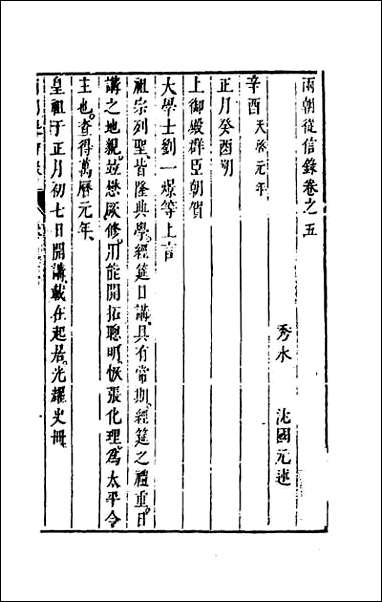 兩朝從信錄卷之五
秀水 沈國元述
辛酉 天啓元年
正月癸酉朔
上御殿群臣朝賀
大學士劉一燝等上言
祖宗列聖皆隆典學經筵日講具有常期經筵之禮重日
講之地親茲懋厥修用能開拓聰明恢張化理爲太平令
主也查得萬曆元年
皇祖于正月初七日開講載在起居光耀史冊